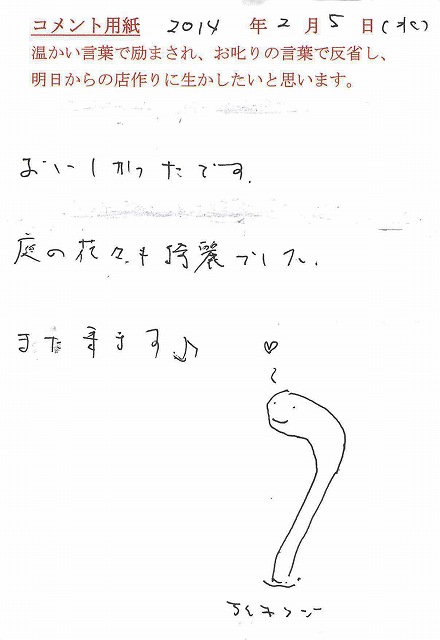 コメント用紙 2014 年 2 月 5 日(水)
温かい言葉で励まされ、お叱りの言葉で反省し、
明日からの店作りに生かしたいと思います。
おいしかったです.
庭の花々も綺麗でした.
また来ます♪
♡